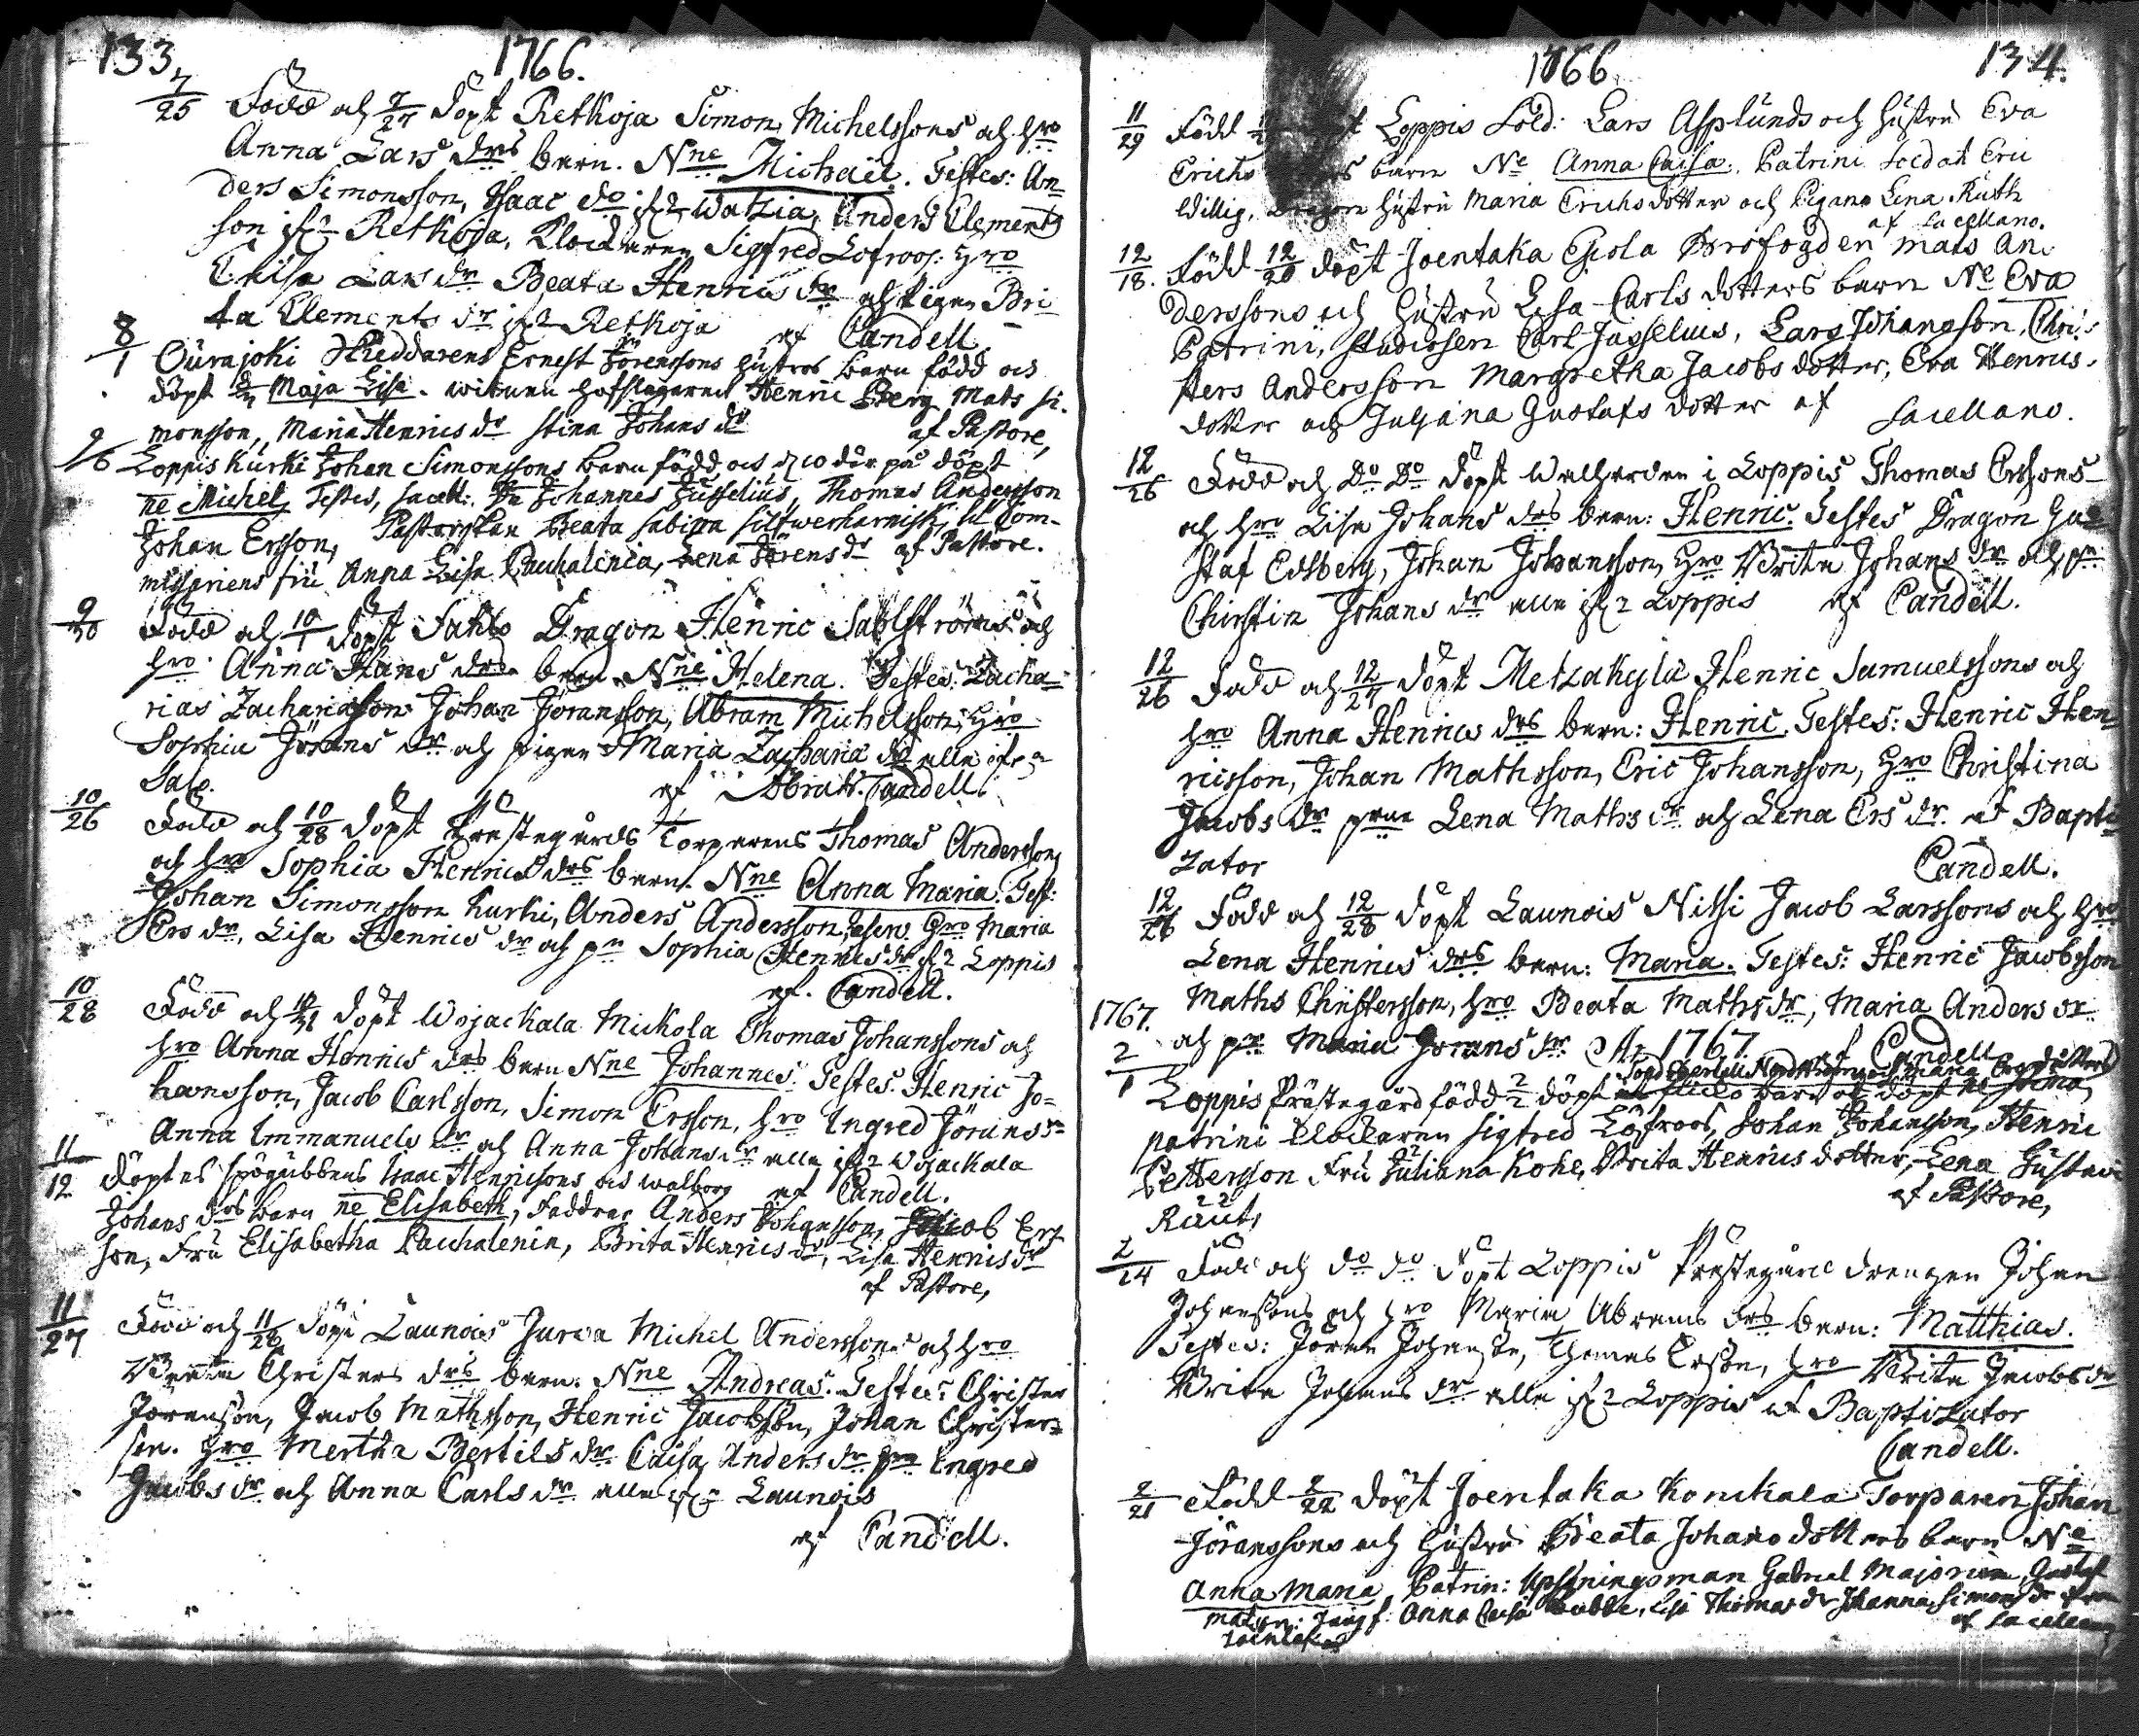 133. 1766.
7/25 Född och 7/27 döpt Retkoja Simon Michelssons och hro
Anna Lars drs barn. Nne Michaël. Testes: An=
ders Simonsson, Isaac do ifr Watzia, Anders Clements
son ifr Retkoja, Klockaren Sigfred Löfroos. Hro
Caisa Lars dr Beata Henrics dr och Pigan Bri
ta Clements dr ifr Retkoja af Candell
8/1 Ourajoki Skreddarens Ernest Jörenssons hustros barn född och
döpt Maja Lisa. witnen hofslagaren Henric Berg Mats Si.
monsson, Maria Henrics dr Stina Johans dr af Pastore,
9/6 Loppis Kurki Johan Simonssons barn född och d 10 där på döpt
ne Michel, Testes, Sacell: Johannes Jusselius, Thomas Andersson
Johan Ersson, Pastorskan Beata Sabina Silfwerharnisk, Com-
missariens fru Anna Lisa Pauhalenia, Lena Jörens dr af Pastore.
9/30 Född och 10/1 döpt Sahls Dragon Henric Sahlströms och
hro Anna Hans drs barn Nne Helena. Testes: Zacha=
rias Zachariasson Johan Joransson, Abram Michelsson, Hro
Sophia Jörans dr och pigan Maria Zacharie dr alla ifr
Salo. af Abrah. Candell.
10/26 Född och 10/28 döpt Prestegårds Torparens Thomas Anderssons
och hro Sophia Henrics drs barn. Nne Anna Maria. Test:
Johan Simonsson Kurki, Anders Andersson, Hro Maria
Ers dr, Lisa Henrics dr och pn Sophia Henrics dr ifr Loppis
af. Candell.
10/28 Född och 10/31 döpt Wojackala Mickola Thomas Johanssons och
hro Anna Henrics drs barn Nne Johannes. Testes. Henric Jo=
hansson, Jacob Carlsson, Simon Ersson, hro Ingred Jörans dr
Anna Immanuels dr och Anna Johans dr alla ifr Wojackala
af Candell.
11/12 Döptes spögubbens Isaac Henricsons och Walborg
Johans drs barn ne Elisabeth, Faddrar Anders Johansson, Jacob Ers
son, Fru Elisabetha Pauhalenia, Brita Henrics dr, Lisa Henrics dr
af Pastore,
11/27 Född och 11/28 döpt Launois Jurwa Michel Anderssons och hro
Christers drs barn. Nne Andreas. Testes: Christer
Joransson, Jacob Mathsson, Henric Jacobsson, Johan Christers=
son. Hro Mertha Bertils dr Caisa Anders dr pn Ingred
Jacobs dr och Anna Carls dr alla ifr Launois
af Candell.
1766 134.
11/29 Född Loppis Sold: Lars Asplunds och hustru Eva
Erichs barn Ne Anna Caisa. Patrini Soldat Eric
Willig, hustru Maria Erichsdotter och Pigan Lena Ruth
af Sacellano.
12/18. Född 12/20 döpt Joentaka Brofogden Mats An.
derssons och hustru Lisa Carls dotters barn Ne Eva
Patrini, Studiosen Carl Jusselius, Lars Johansson, Chri=
sters Andersson Margretha Jacobs dotter, Eva Henrics.
dotter och Juliana Gustafs dotter af Sacellano.
12/26 Född och Do Do döpt i Loppis Thomas Erssons
och hro Lisa Johans drs barn: Henric. Testes Dragon Gu=
staf Edsberg, Johan Johansson, Hro Brita Johans dr och pn
Chirstin Johans dr alla ifr Loppis af Candell.
12/26 Född och 12/27 döpt Metzakylä Henric Samuelssons och
hro Anna Henrics drs barn: Henric. Testes: Henric Hen=
ricsson, Johan Mathsson, Eric Johansson, Hro Christina
Jacobs dr Lena Maths dr och Lena Ers dr af Bapti
zator Candell.
12/26 Född och 12/28 döpt Launois Nitsi Jacob Larssons och Hro
Lena Henrics drs barn: Maria. Testes: Henric Jacobsson
Maths Christersson, hro Beata Maths dr, Maria Anders dr
och pn Maria Jorans dr af Candell
1767. Ao 1767
2/1 Loppis Prästegård född 2/2 döpt
patrini Klockaren Sigfred Löfroos, Johan Johansson, Henric
Pettersson Fru Juliana Kohe, Brita Henrics dotter, Lena Gustava
Raut, af Pastore,
2/14 Född och do do döpt Loppis Prästegård drengen Johan
Johanssons och hro Maria Abrams drs barn: Matthias.
Testes: Joran Johansson, Thomas Ersson, hro Brita Jacobs dr
Brita Johans dr alla ifr Loppis af Baptizator
Candell.
2/21 Född 2/22 döpt Joentaka Konickala Torparen Johan
Jöranssons och hustru Beata Johans dotters barn Ne
Anna Maria, Patrin: Upsyningsman Gabriel Majorin, Gustaf
Jungf: Anna Caisa Lisa Thomas dr Johanna Simons dr
af Sacellano